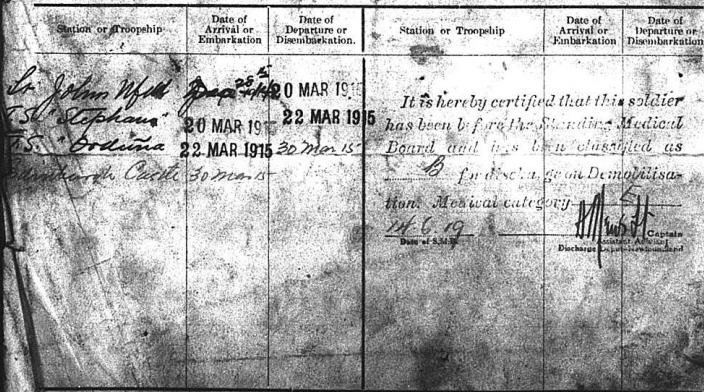 Station or Troopship
Date of Arrival or Embarkation
Date of Departure or Disembarkation.
Station or Troopship
Date of Arrival or Embarkation
Date of Departure or Disembarkation
St. Johns Nfld 20 MAR 1915
T.S. "Stephano" 20 MAR 1915 22 MAR 1915
T.S. "Orduña" 22 MAR 1915 30 Mar 15
Edinburgh Castle 30 Mar 15
It is hereby certified that this soldier
has been before the Standing Medical
Board and has been classified as
B for discharge on Demobilisa-
tion. Medical category E
14.6.19
Captain
Date of S.M.B.
Discharge Depot Newfoundland